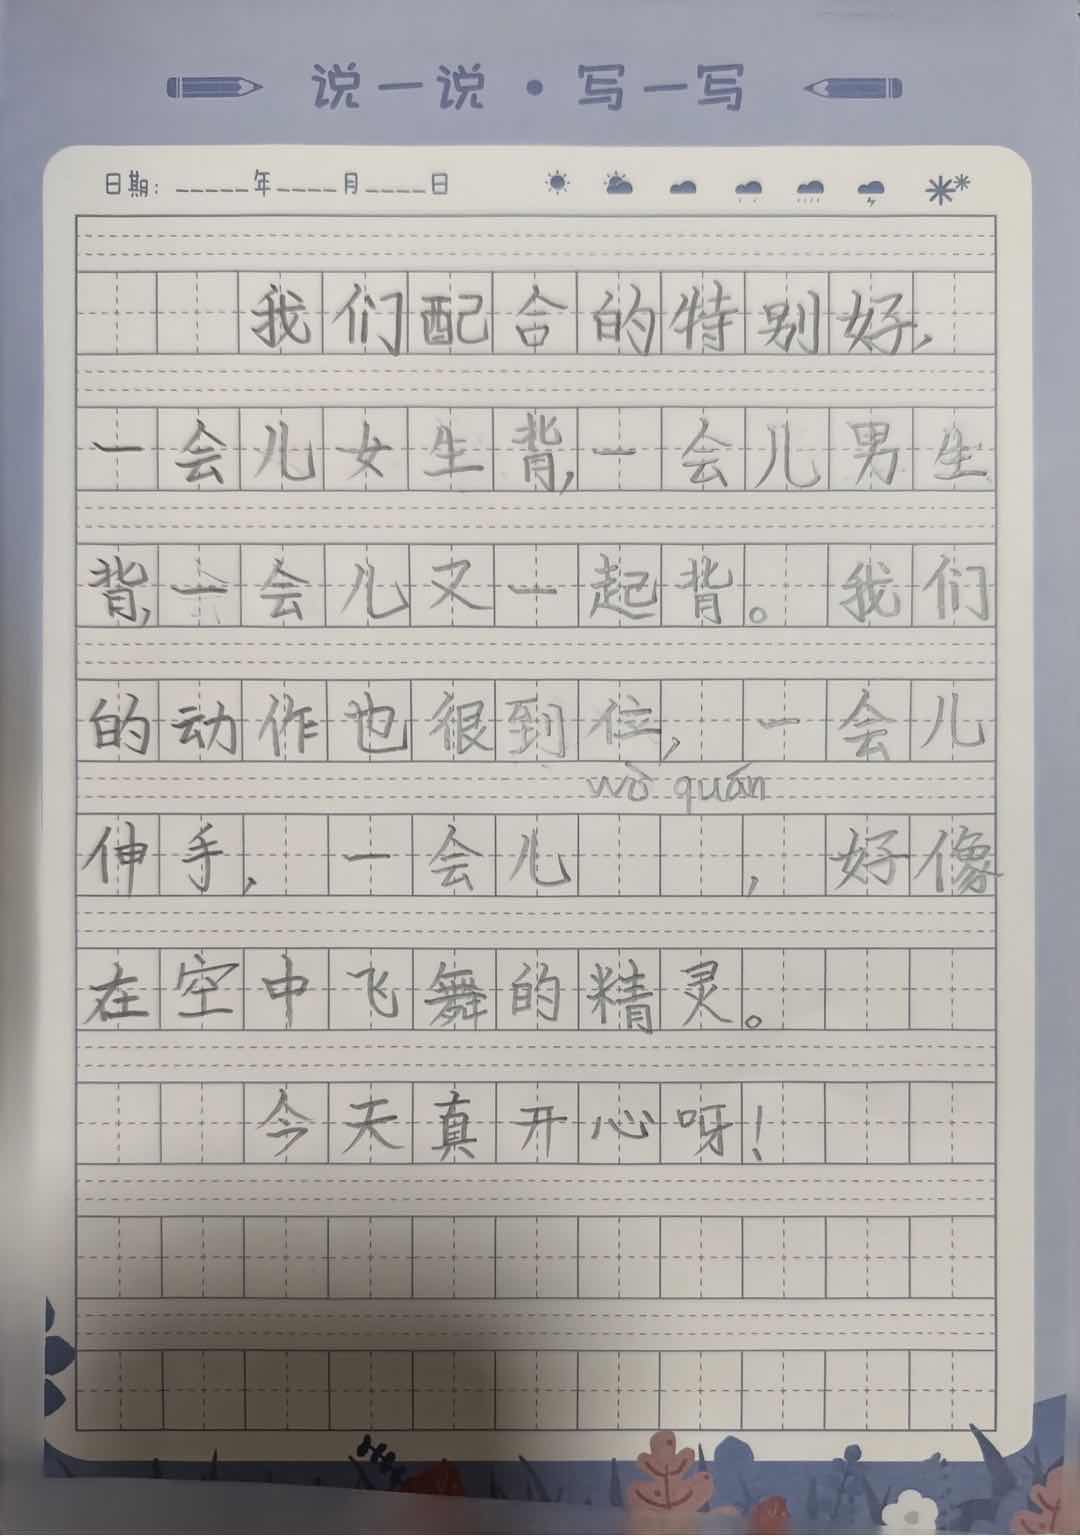 说一说·写一写
日期：_____年____月____日
我们配合的特别好，
一会儿女生背，一会儿男生
背，一会儿又一起背。我们
的动作也很到位，一会儿
wò quán
伸手，一会儿    ，好像
在空中飞舞的精灵。
今天真开心呀！